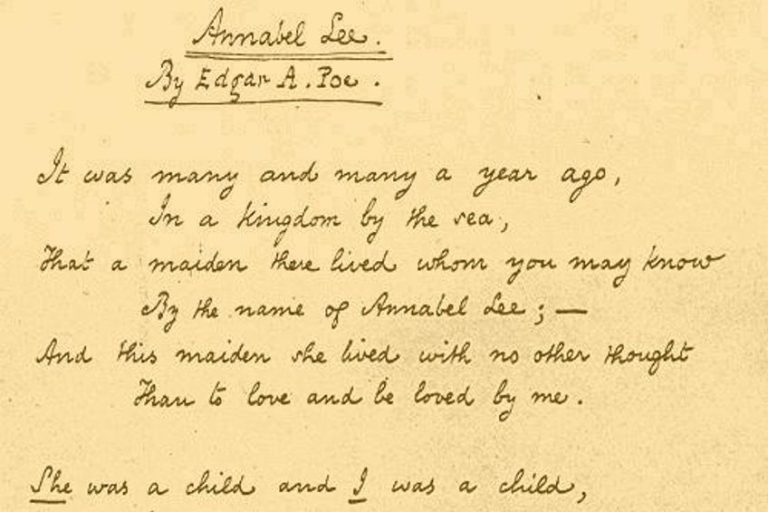 Annabel Lee.
By Edgar A. Poe.
It was many and many a year ago,
In a kingdom by the sea,
That a maiden there lived whom you may know
By the name of Annabel Lee; —
And this maiden she lived with no other thought
Than to love and be loved by me.
She was a child and I was a child,